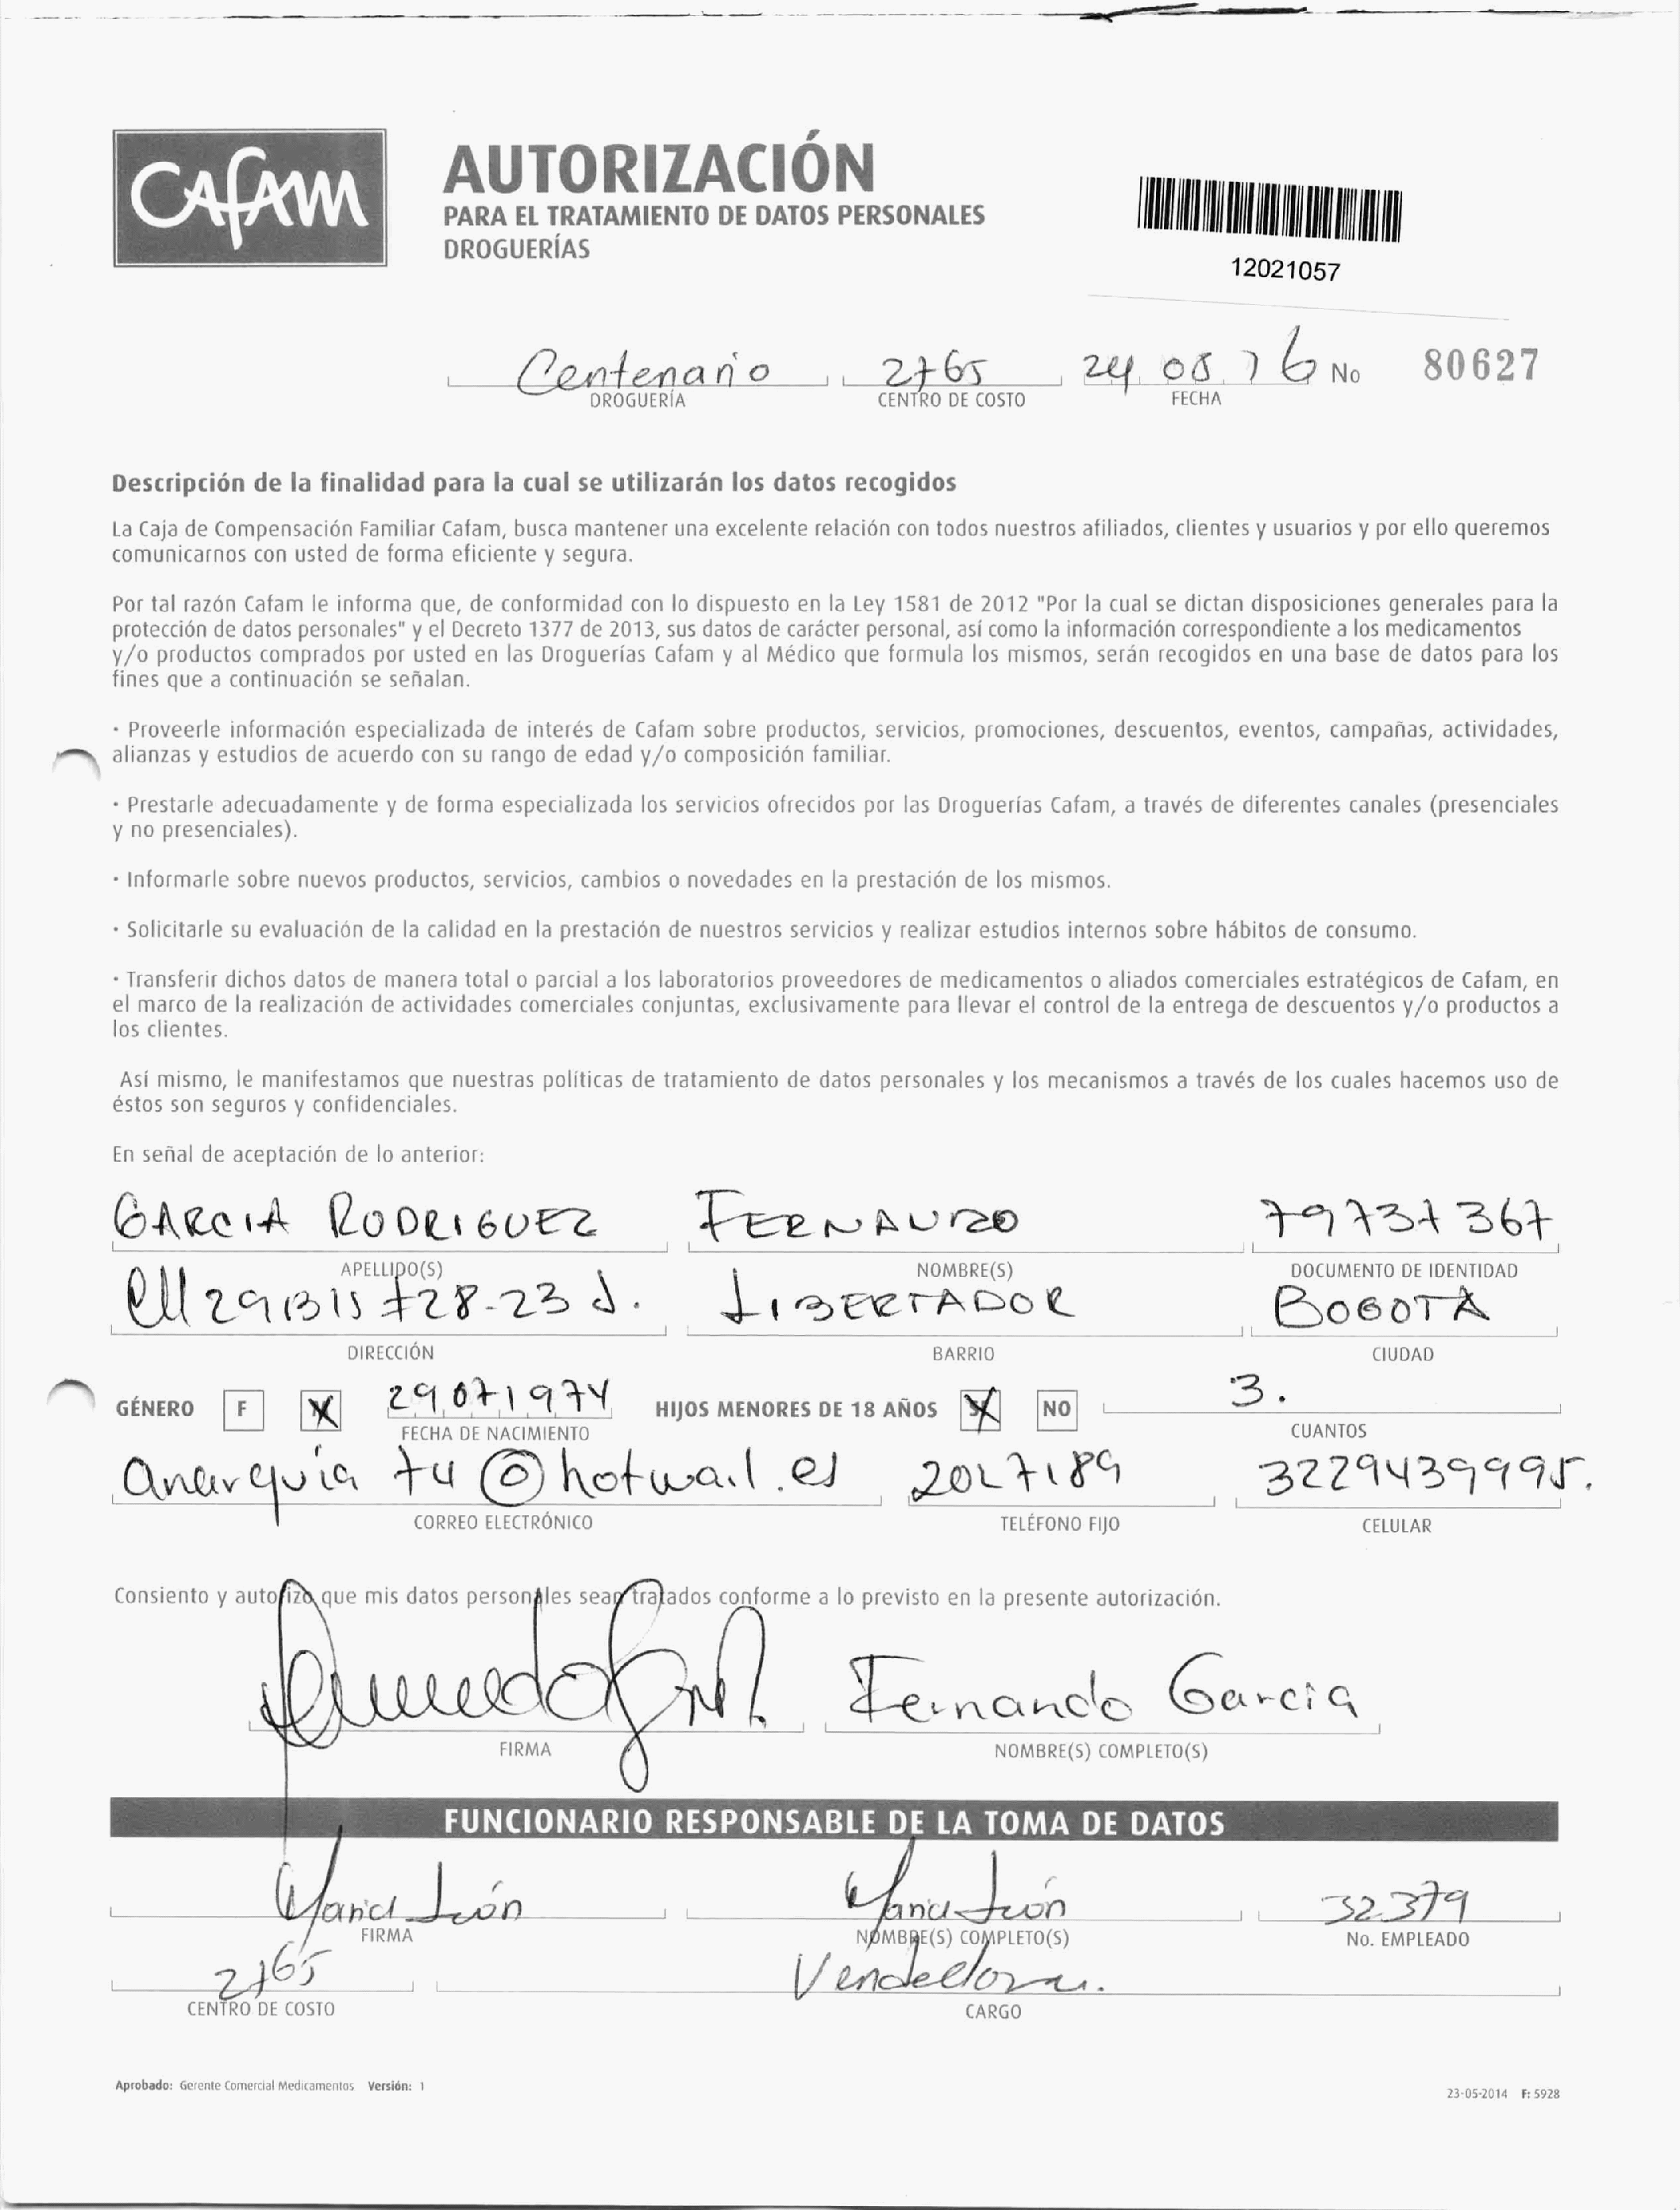 CAFAM
AUTORIZACIÓN
PARA EL TRATAMIENTO DE DATOS PERSONALES
DROGUERÍAS
12021057
Centenario 2765 24 08 16 No 80627
DROGUERÍA CENTRO DE COSTO FECHA
Descripción de la finalidad para la cual se utilizarán los datos recogidos
La Caja de Compensación Familiar Cafam, busca mantener una excelente relación con todos nuestros afiliados, clientes y usuarios y por ello queremos
comunicarnos con usted de forma eficiente y segura.
Por tal razón Cafam le informa que, de conformidad con lo dispuesto en la Ley 1581 de 2012 "Por la cual se dictan disposiciones generales para la
protección de datos personales" y el Decreto 1377 de 2013, sus datos de carácter personal, así como la información correspondiente a los medicamentos
y/o productos comprados por usted en las Droguerías Cafam y al Médico que formula los mismos, serán recogidos en una base de datos para los
fines que a continuación se señalan.
· Proveerle información especializada de interés de Cafam sobre productos, servicios, promociones, descuentos, eventos, campañas, actividades,
alianzas y estudios de acuerdo con su rango de edad y/o composición familiar.
· Prestarle adecuadamente y de forma especializada los servicios ofrecidos por las Droguerías Cafam, a través de diferentes canales (presenciales
y no presenciales).
· Informarle sobre nuevos productos, servicios, cambios o novedades en la prestación de los mismos.
· Solicitarle su evaluación de la calidad en la prestación de nuestros servicios y realizar estudios internos sobre hábitos de consumo.
· Transferir dichos datos de manera total o parcial a los laboratorios proveedores de medicamentos o aliados comerciales estratégicos de Cafam, en
el marco de la realización de actividades comerciales conjuntas, exclusivamente para llevar el control de la entrega de descuentos y/o productos a
los clientes.
Así mismo, le manifestamos que nuestras políticas de tratamiento de datos personales y los mecanismos a través de los cuales hacemos uso de
éstos son seguros y confidenciales.
En señal de aceptación de lo anterior:
GARCIA RODRIGUEZ FERNANDO 79737367
APELLIDO(S) NOMBRE(S) DOCUMENTO DE IDENTIDAD
28-23 LIBERTADOR BOGOTA
DIRECCIÓN BARRIO CIUDAD
GÉNERO F X 29071974 HIJOS MENORES DE 18 AÑOS X NO 3.
FECHA DE NACIMIENTO CUANTOS
anarquia 74@hotmail.es 2027189 3229439995.
CORREO ELECTRÓNICO TELÉFONO FIJO CELULAR
Consiento y autorizo que mis datos personales sean tratados conforme a lo previsto en la presente autorización.
Fernando Garcia
FIRMA NOMBRE(S) COMPLETO(S)
FUNCIONARIO RESPONSABLE DE LA TOMA DE DATOS
Maria León Maria León 32379
FIRMA NOMBRE(S) COMPLETO(S) No. EMPLEADO
2765 Vendedora.
CENTRO DE COSTO CARGO
Aprobado: Gerente Comercial Medicamentos Versión: 1
23-05-2014 F: 5928